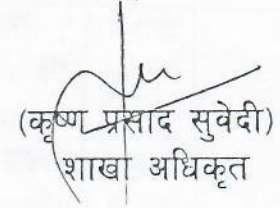 (कृष्ण प्रसाद सुवेदी)
शाखा अधिकृत